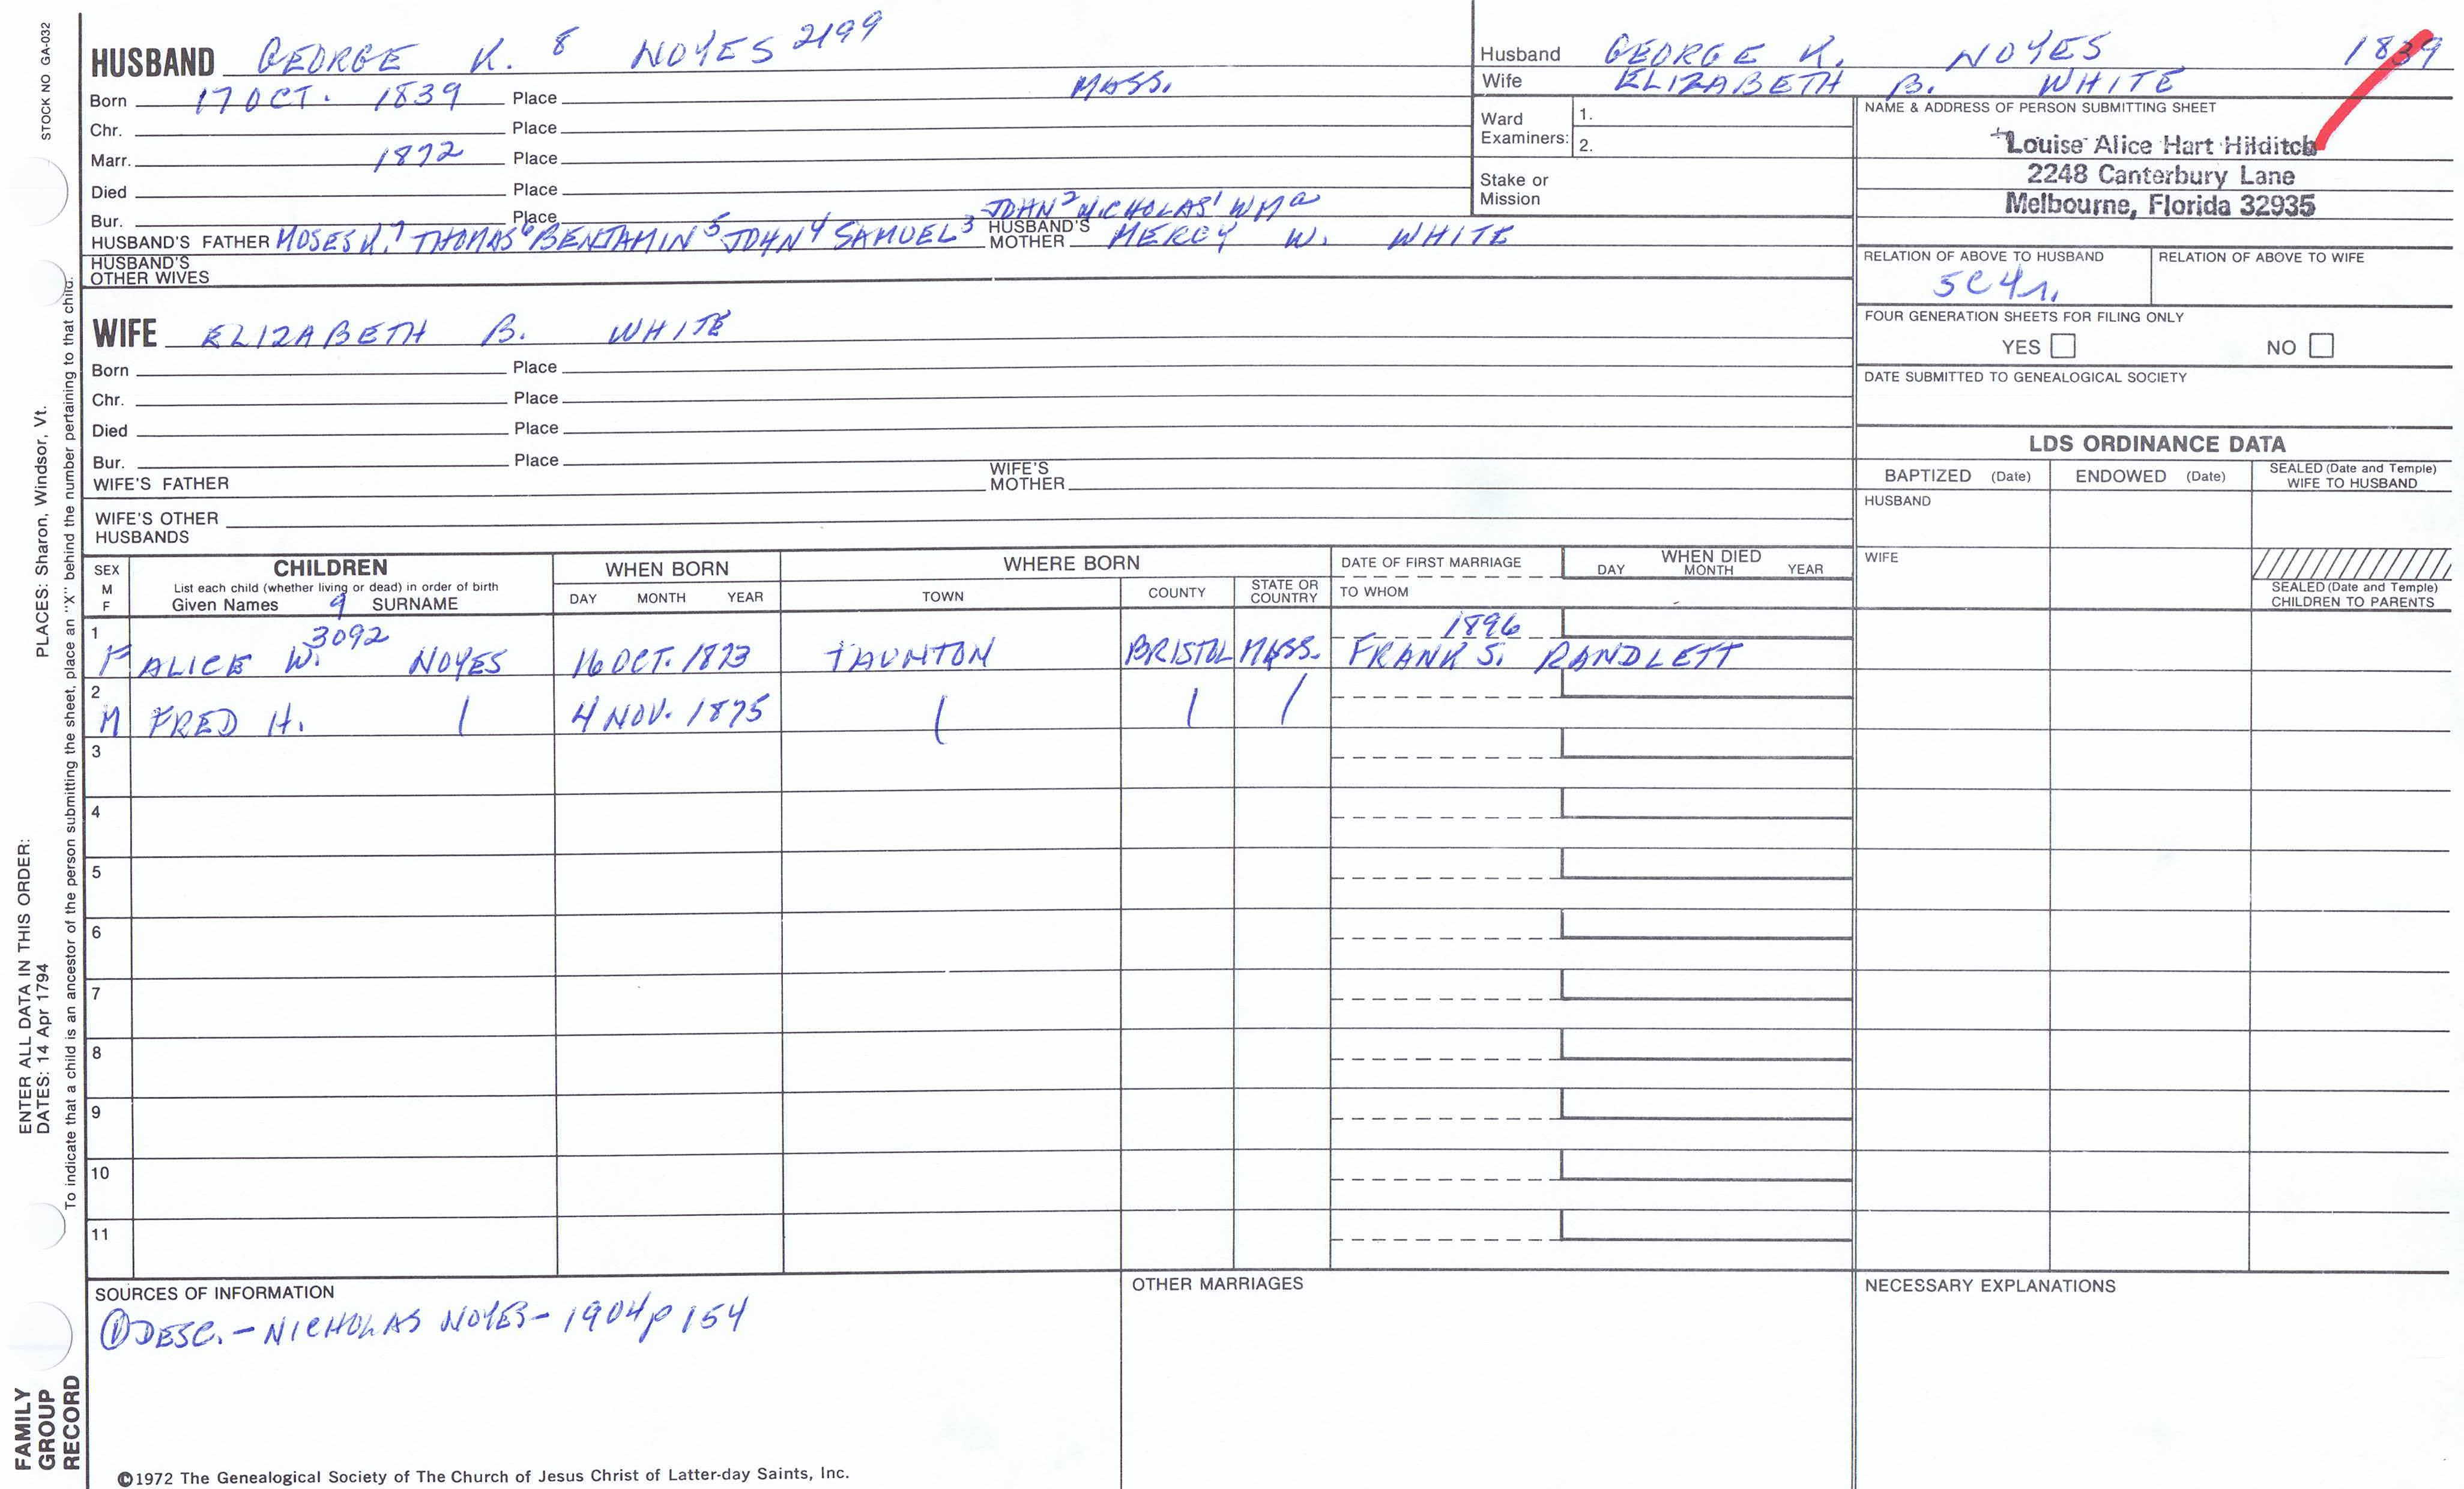 STOCK NO GA-032
HUSBAND GEORGE K. 8 NOYES 2199
Born 17 OCT. 1839 Place MASS.
Chr. Place
Marr. 1872 Place
Died Place
Bur. Place JOHN2 NICHOLAS1 WMa
HUSBAND'S FATHER MOSES K.7 THOMAS6 BENJAMIN5 JOHN4 SAMUEL3 HUSBAND'S MOTHER MERCY W. WHITE
HUSBAND'S OTHER WIVES
WIFE ELIZABETH B. WHITE
Born Place
Chr. Place
Died Place
Bur. Place
WIFE'S FATHER WIFE'S MOTHER
WIFE'S OTHER HUSBANDS
Husband GEORGE K. NOYES 1839
Wife ELIZABETH B. WHITE
Ward Examiners: 1.
2.
Stake or Mission
NAME & ADDRESS OF PERSON SUBMITTING SHEET
Louise Alice Hart Hilditch
2248 Canterbury Lane
Melbourne, Florida 32935
RELATION OF ABOVE TO HUSBAND RELATION OF ABOVE TO WIFE
5C4r.
FOUR GENERATION SHEETS FOR FILING ONLY
YES NO
DATE SUBMITTED TO GENEALOGICAL SOCIETY
LDS ORDINANCE DATA
BAPTIZED (Date) ENDOWED (Date) SEALED (Date and Temple) WIFE TO HUSBAND
HUSBAND
WIFE
SEALED (Date and Temple) CHILDREN TO PARENTS
SEX M F CHILDREN WHEN BORN WHERE BORN DATE OF FIRST MARRIAGE WHEN DIED
List each child (whether living or dead) in order of birth DAY MONTH YEAR TOWN COUNTY STATE OR COUNTRY TO WHOM DAY MONTH YEAR
Given Names 9 SURNAME
1 3092 1896
F ALICE W. NOYES 16 OCT. 1873 TAUNTON BRISTOL MASS. FRANK S. RANDLETT
2
M FRED H. | 4 NOV. 1875 | | |
3
4
5
6
7
8
9
10
11
SOURCES OF INFORMATION OTHER MARRIAGES NECESSARY EXPLANATIONS
① DESC. - NICHOLAS NOYES - 1904 p 154
©1972 The Genealogical Society of The Church of Jesus Christ of Latter-day Saints, Inc.
ENTER ALL DATA IN THIS ORDER:
DATES: 14 Apr 1794 PLACES: Sharon, Windsor, Vt.
To indicate that a child is an ancestor of the person submitting the sheet, place an "X" behind the number pertaining to that child.
FAMILY
GROUP
RECORD